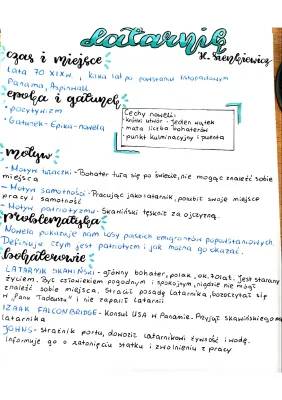 Latarnik
H. Sienkiewicz
czas i miejsce
Lata 70 XIXw, kilka lat po powstaniu listopadowym
Panama, Aspinwall
epoka i gatunek
- pozytywizm
- Gatunek-Epika-nowela
Cechy noweli:
- krótki utwór - jeden wątek
- mała liczba bohaterów
- punkt kulminacyjny i puenta
motyw
- Motyw tułaczki-Bohater tuła się po świecie, nie mogąc znaleźć sobie
miejsca
- Motyw samotności-Pracując jako latarnik, polubił swoje miejsce
pracy i samotność
- Motyw patriotyzmu-Skawiński tęsknił za ojczyzną.
problematyka
Nowela pokazuje nam losy polskich emigrantów popowstaniowych.
Definiuje czym jest patriotyzm i jak można go okazać.
bohaterowie
LATARNIK SKAWIŃSKI-główny bohater, polak, ok. 70lat. Jest starany
życiem. Był człowiekiem pogodnym i spokojnym, nigdzie nie mógł
znaleźć sobie miejsca. Stracił posadę latarnika, bo zaczytał się
w „Panu Tadeuszu" i nie zapalił latarni
IZAAK FALCONBRIDGE-Konsul USA w Panamie. Przyjął Skawińskiego na
latarnika
JOHNS-strażnik portu, dowoził latarnikowi żywność i wodę.
Informuje go o zatonięciu statku i zwolnieniu z pracy